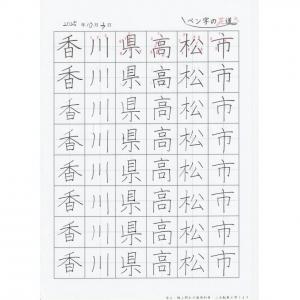 2025年10月3日
ペン字の正道
香川県高松市
香川県高松市
香川県高松市
香川県高松市
香川県高松市
香川県高松市
香川県高松市
香川県高松市